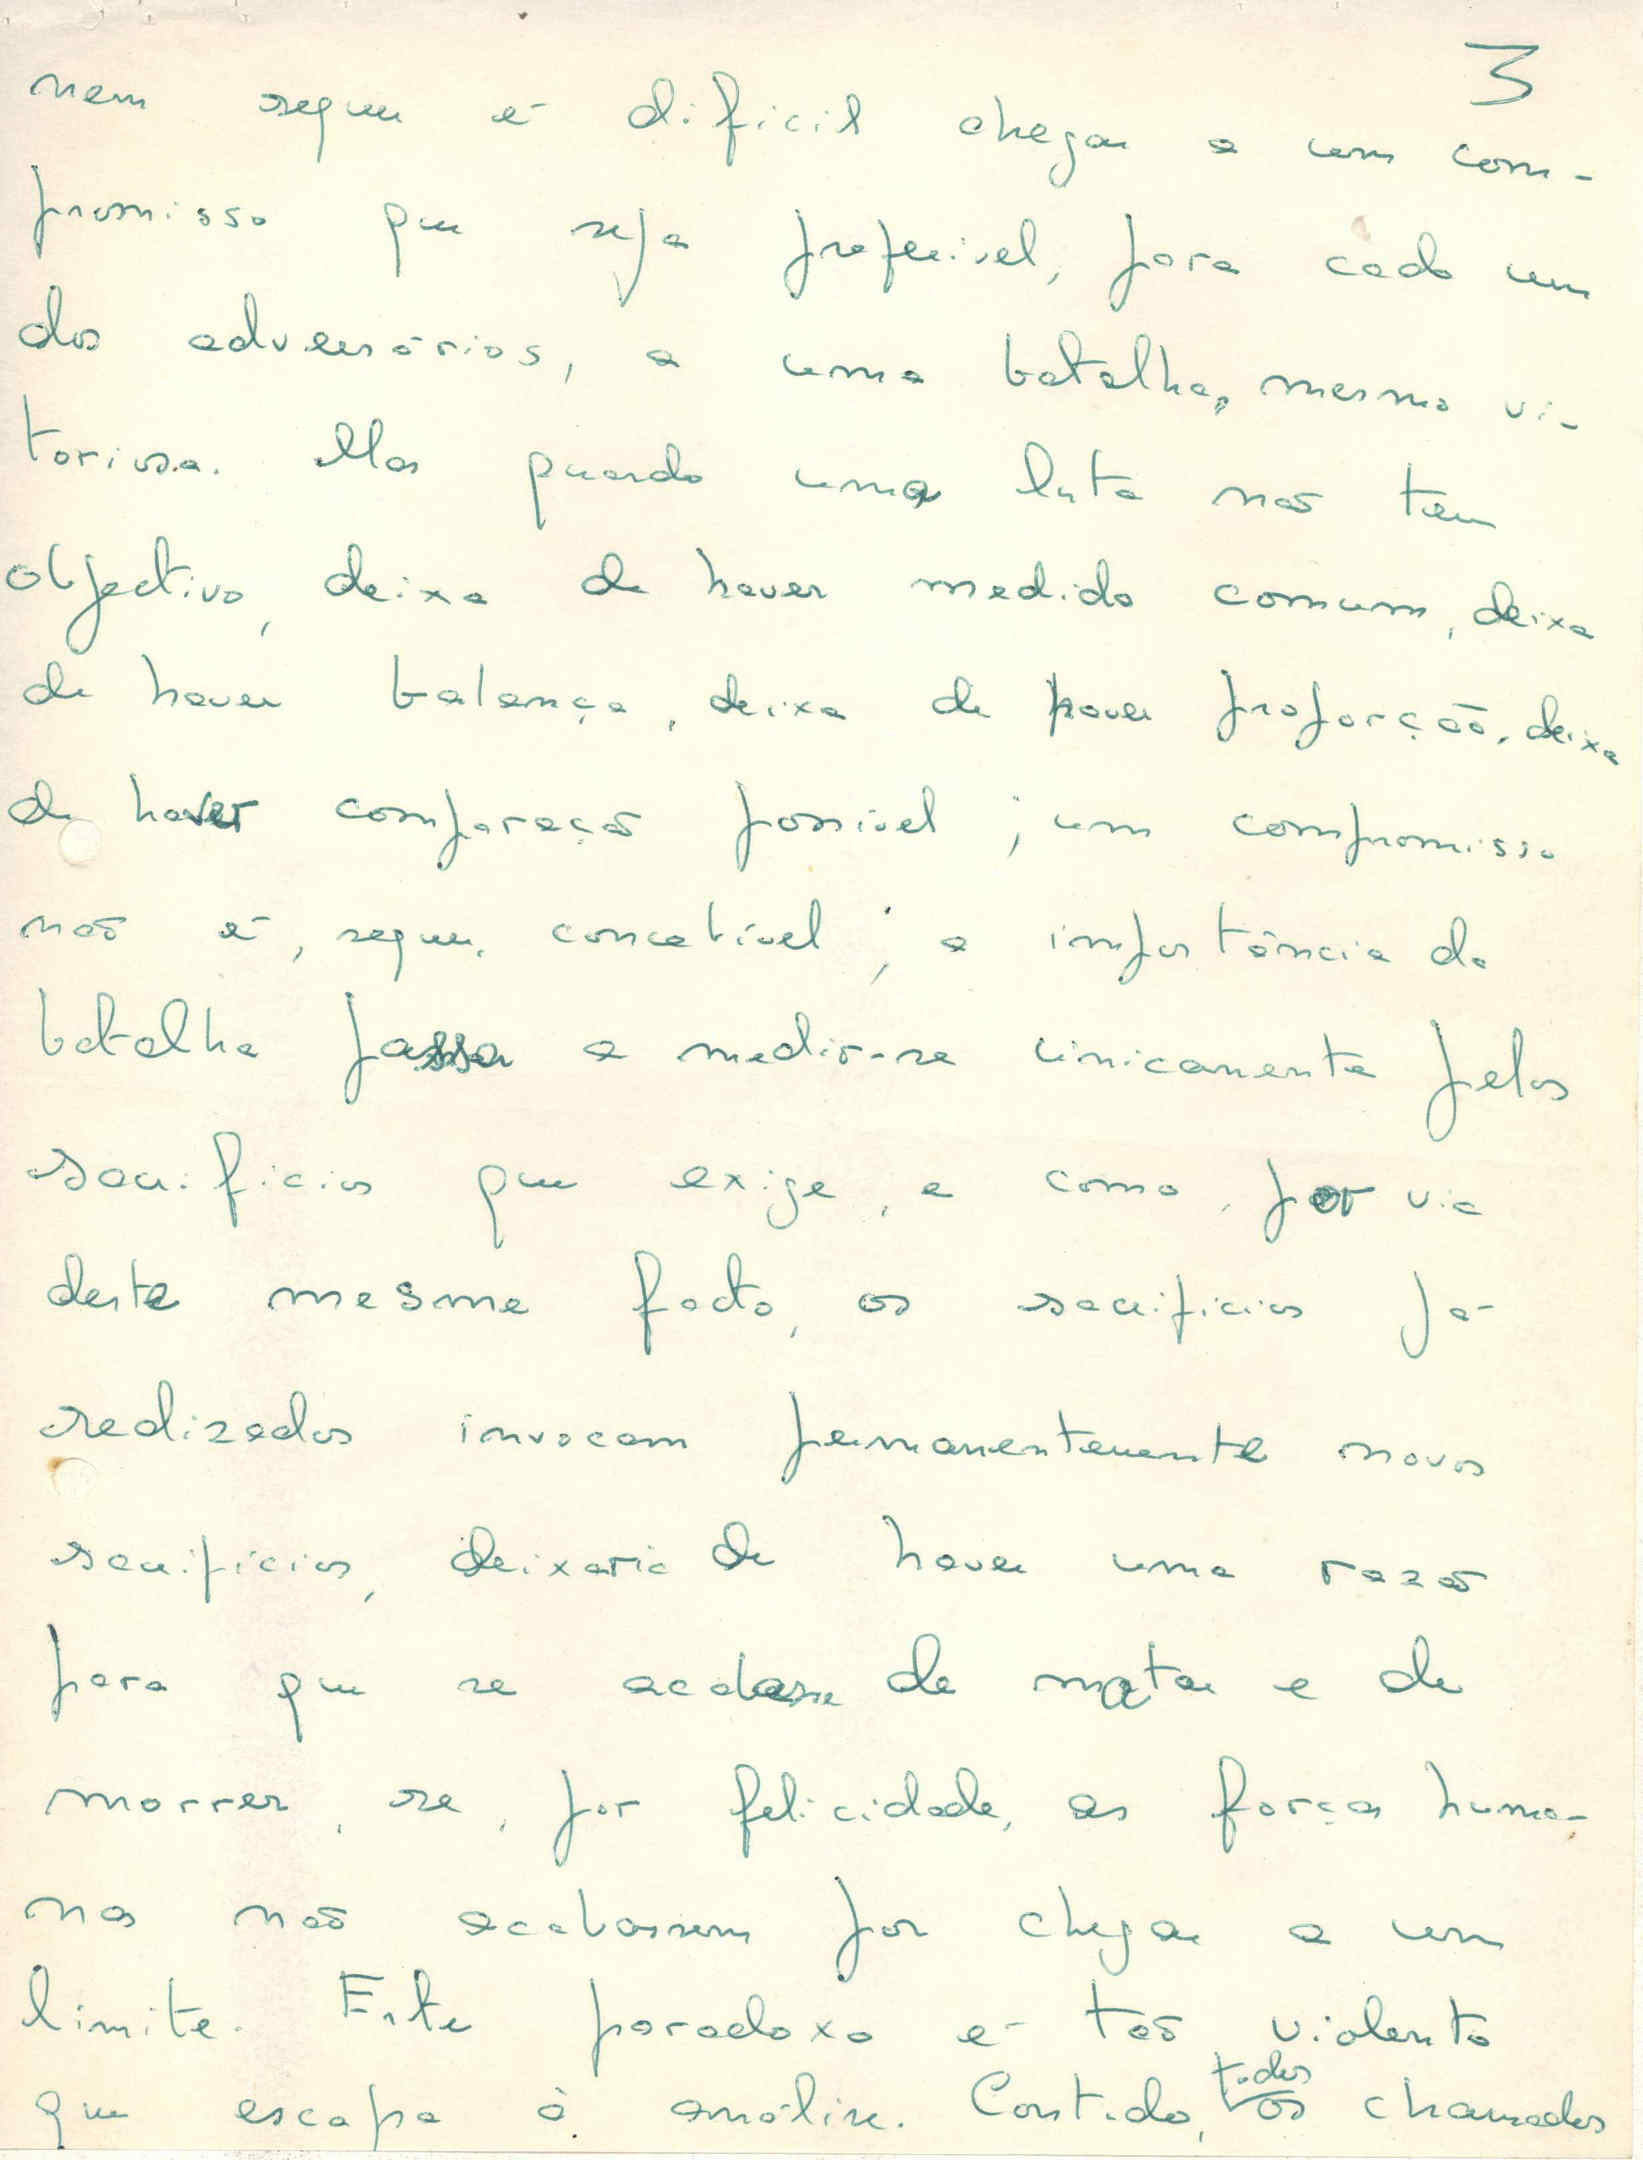 3
nem sequer é difícil chegar a um com-
promisso que seja preferível, para cada um
dos adversários, a uma batalha, mesmo vi-
toriosa. Mas quando uma luta não tem
objectivo, deixa de haver medida comum, deixa
de haver balança, deixa de haver proporção, deixa
de haver comparação possível; um compromisso
não é, sequer, concebível; a importância da
batalha passa a medir-se unicamente pelos
sacrifícios que exige, e como, por via
deste mesmo facto, os sacrifícios já
realizados invocam permanentemente novos
sacrifícios, deixaria de haver uma razão
para que se acabasse de matar e de
morrer, se, por felicidade, as forças huma-
nas não acabassem por chegar a um
limite. Este paradoxo é tão violento
que escapa à análise. Contudo, todos os chamados